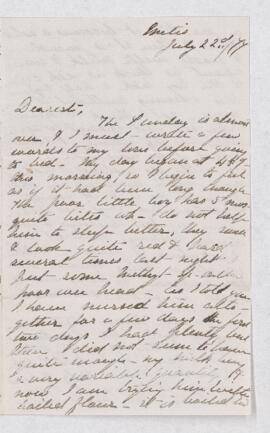 July 22nd/77
Dearest,
The Sunday is almost
over & I must write a few
words to my love before going
to bed. My day began at 4 A.M.
this morning, so I begin to feel
as if it had been long enough
The poor little boy has 5 mos.
quite bites wh. do not help
him to sleep better, they were
& look quite red & hard
several times last night I
put some
poor wee head. As I told you
I have nursed him alto-
gether for a few days the first
two days I had plenty but
then I did not seem to have
quite enough - my milk
is very variable in quantity
now I am trying him with
boiled flour - it is boiled in